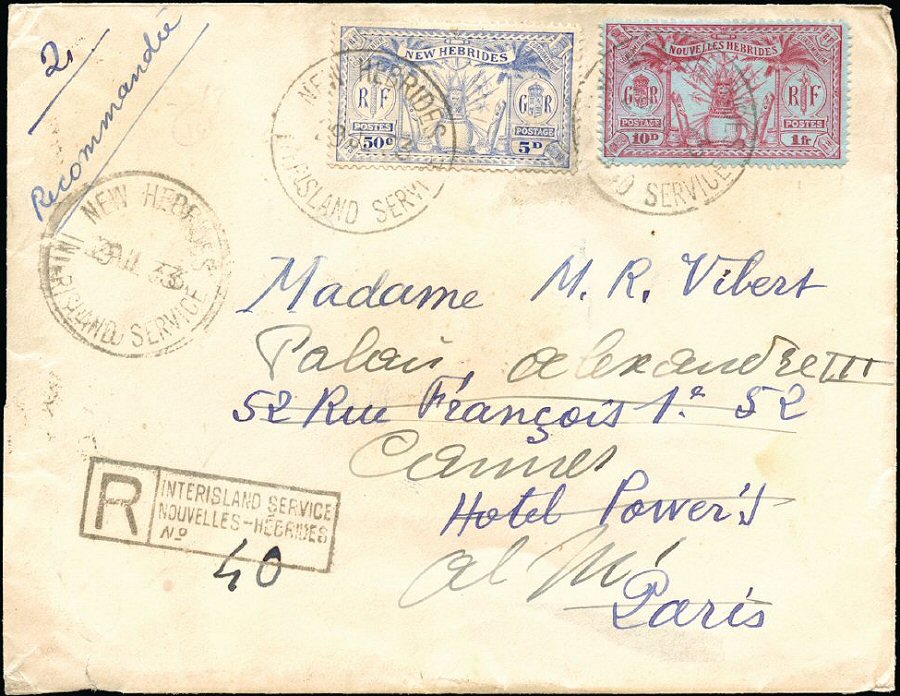 2
Recommandée
NEW HEBRIDES
RF
GR
POSTES
POSTAGE
50c
5D
NOUVELLES HEBRIDES
GR
RF
POSTAGE
POSTES
10D
1fr
NEW HEBRIDES
INTERISLAND SERVICE
SERVICE
NEW HEBRIDES
33
INTERISLAND SERVICE
Madame M. R. Vibert
Palais Alexandre III
52 Rue François 1er 52
Cannes
Hotel Power's
al M
Paris
R
INTERISLAND SERVICE
NOUVELLES-HÉBRIDES
No
40